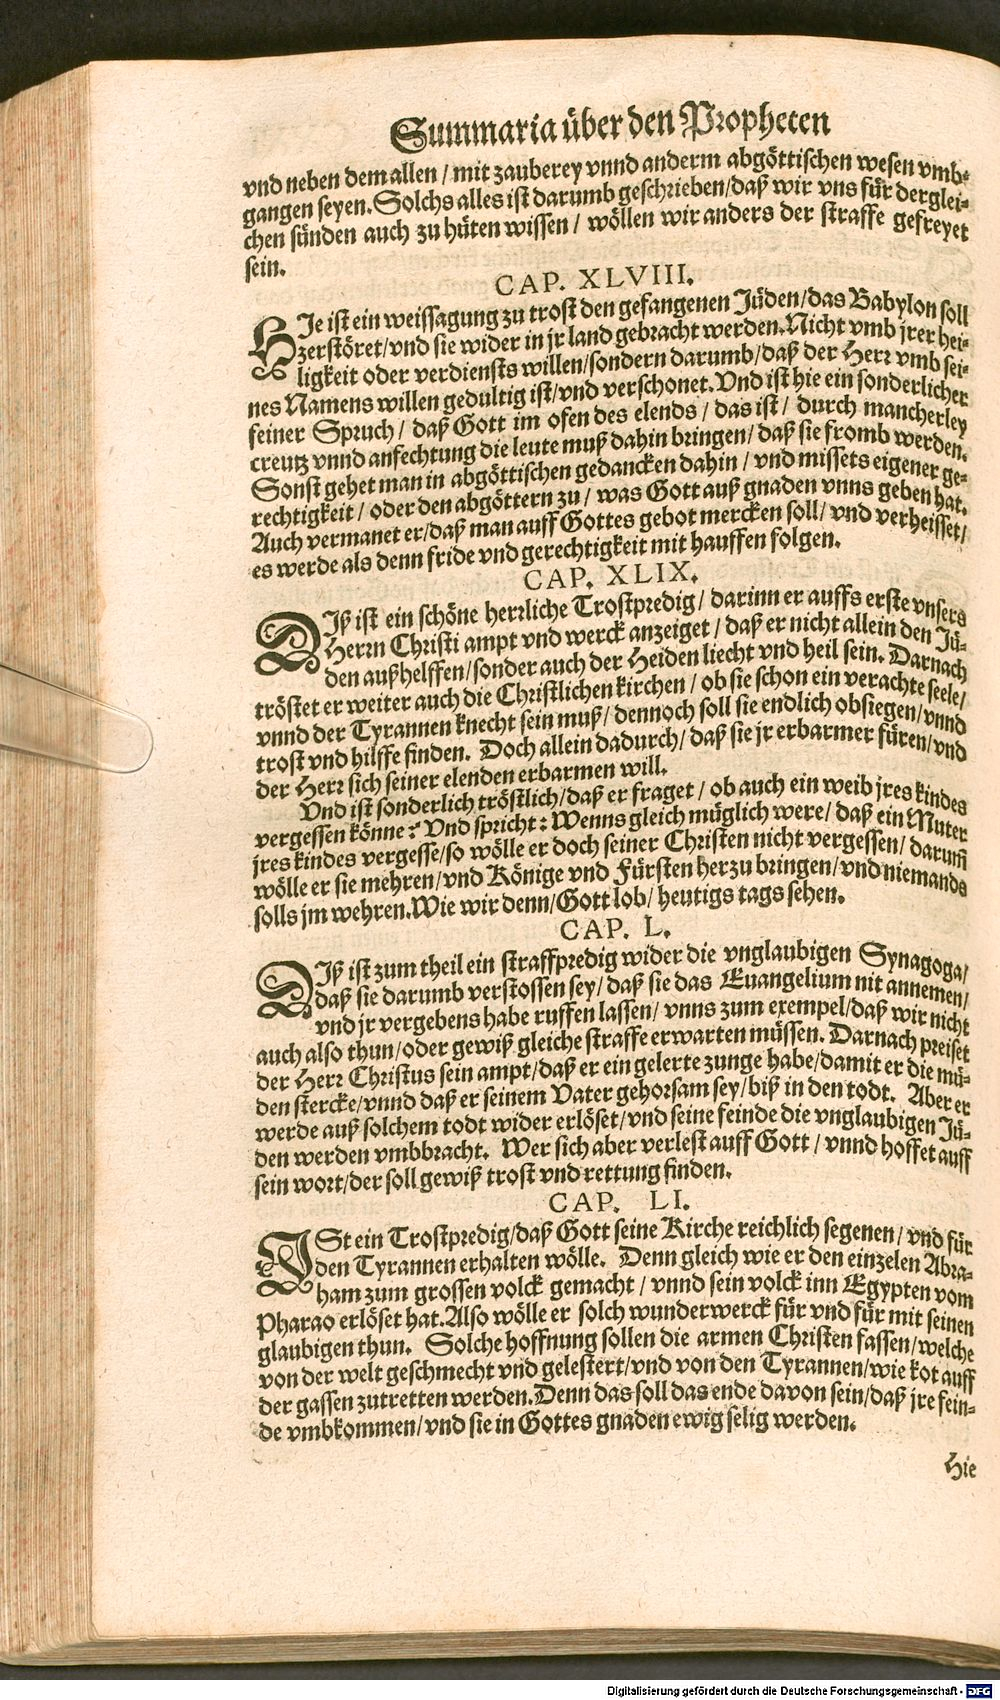 Summaria über den Propheten
vnd neben dem allen / mit zauberey vnnd anderm abgöttischen wesen vmb-
gangen seyen. Solchs alles ist darumb geschrieben / daß wir vns für derglei-
chen sünden auch zu hüten wissen / wöllen wir anders der straffe gefreyet
sein.
CAP. XLVIII.
HIe ist ein weissagung zu trost den gefangenen Jüden / das Babylon soll
zerstöret / vnd sie wider in jr land gebracht werden. Nicht vmb jrer hei-
ligkeit oder verdiensts willen / sondern darumb / daß der Herr vmb sei-
nes Namens willen gedultig ist / vnd verschonet. Vnd ist hie ein sonderlicher
feiner Spruch / daß Gott im ofen des elends / das ist / durch mancherley
creutz vnnd anfechtung die leute muß dahin bringen / daß sie fromb werden.
Sonst gehet man in abgöttischen gedancken dahin / vnd missets eigener ge-
rechtigkeit / oder den abgöttern zu / was Gott auß gnaden vnns geben hat.
Auch vermanet er / daß man auff Gottes gebot mercken soll / vnd verheisset /
es werde als denn fride vnd gerechtigkeit mit hauffen folgen.
CAP. XLIX.
DIß ist ein schöne herrliche Trostpredig / darinn er auffs erste vnsers
Herrn Christi ampt vnd werck anzeiget / daß er nicht allein den Jü-
den außhelffen / sonder auch der Heiden liecht vnd heil sein. Darnach
tröstet er weiter auch die Christlichen kirchen / ob sie schon ein verachte seele /
vnnd der Tyrannen knecht sein muß / dennoch soll sie endlich obsiegen / vnnd
trost vnd hilffe finden. Doch allein dadurch / daß sie jr erbarmer füren / vnd
der Herr sich seiner elenden erbarmen will.
Vnd ist sonderlich tröstlich / daß er fraget / ob auch ein weib jres kindes
vergessen könne? Vnd spricht: Wenns gleich müglich were / daß ein Muter
jres kindes vergesse / so wölle er doch seiner Christen nicht vergessen / darum̃
wölle er sie mehren / vnd Könige vnd Fürsten herzu bringen / vnd niemands
solls jm wehren. Wie wir denn / Gott lob / heutigs tags sehen.
CAP. L.
DIß ist zum theil ein straffpredig wider die vnglaubigen Synagoga /
daß sie darumb verstossen sey / daß sie das Euangelium nit annemen /
vnd jr vergebens habe ruffen lassen / vnns zum exempel / daß wir nicht
auch also thun / oder gewiß gleiche straffe erwarten müssen. Darnach preiset
der Herr Christus sein ampt / daß er ein gelerte zunge habe / damit er die mü-
den stercke / vnnd daß er seinem Vater gehorsam sey / biß in den todt. Aber er
werde auß solchem todt wider erlöset / vnd seine feinde die vnglaubigen Jü-
den werden vmbbracht. Wer sich aber verlest auff Gott / vnnd hoffet auff
sein wort / der soll gewiß trost vnd rettung finden.
CAP. LI.
ISt ein Trostpredig / daß Gott seine Kirche reichlich segenen / vnd für
den Tyrannen erhalten wölle. Denn gleich wie er den einzelen Abra-
ham zum grossen volck gemacht / vnnd sein volck inn Egypten vom
Pharao erlöset hat. Also wölle er solch wunderwerck für vnd für mit seinen
glaubigen thun. Solche hoffnung sollen die armen Christen fassen / welche
von der welt geschmecht vnd gelestert / vnd von den Tyrannen / wie kot auff
der gassen zutretten werden. Denn das soll das ende davon sein / daß jre fein-
de vmbkommen / vnd sie in Gottes gnaden ewig selig werden.
Hie
Digitalisierung gefördert durch die Deutsche Forschungsgemeinschaft - DFG